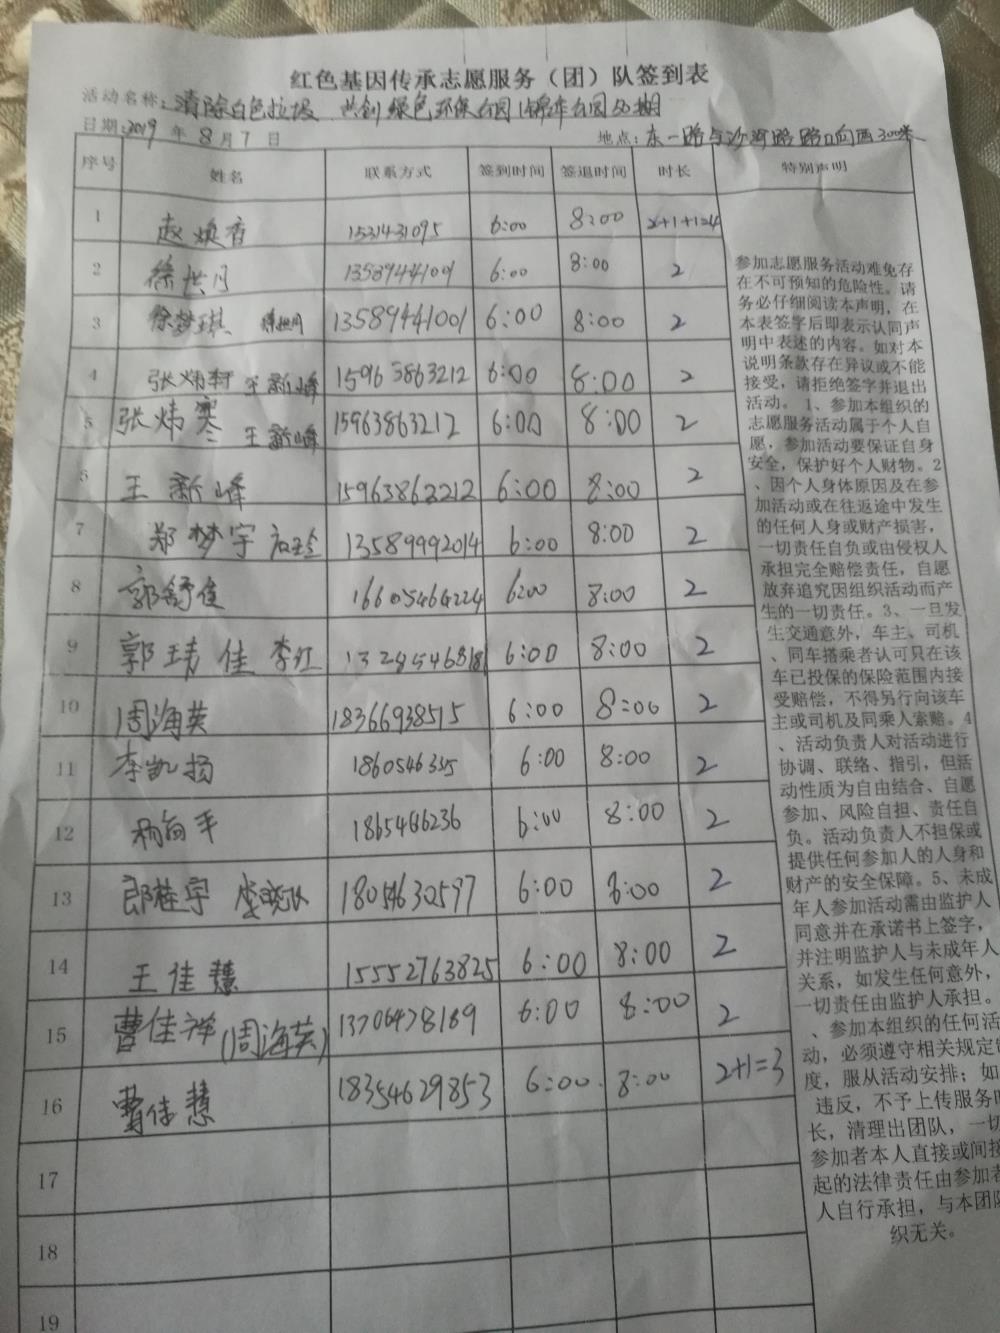 红色基因传承志愿服务（团）队签到表
活动名称：清除白色垃圾 共创绿色环保公园 50期
日期：2019 年 8 月 7 日 地点：东一路与沙河路路口向西300米
序号 姓名 联系方式 签到时间 签退时间 时长 特别声明
1 赵焕香 1531431095 6:00 8:00 2+1+1=4
2 徐洪月 13589441001 6:00 8:00 2
3 徐梦琪 徐洪月 13589441001 6:00 8:00 2
4 张炜轩 王新峰 15963863212 6:00 8:00 2
5 张炜寒 王新峰 15963863212 6:00 8:00 2
6 王新峰 15963863212 6:00 8:00 2
7 郑梦宇 13589992014 6:00 8:00 2
8 郭舒佳 16605464224 6:00 8:00 2
9 郭靖佳 李红 6:00 8:00 2
10 周海英 18366938515 6:00 8:00 2
11 李凯扬 6:00 8:00 2
12 1865466236 6:00 8:00 2
13 郎桂宇 18054630597 6:00 8:00 2
14 王佳慧 15552763825 6:00 8:00 2
15 曹佳祥（周海英） 13706478189 6:00 8:00 2
16 曹佳慧 18354629853 6:00 8:00 2+1=3
17
18
19
参加志愿服务活动难免存
在不可预知的危险性。请
务必仔细阅读本声明，在
本表签字后即表示认同声
明中表述的内容。如对本
说明条款存在异议或不能
接受，请拒绝签字并退出
活动。 1、参加本组织的
志愿服务活动属于个人自
愿，参加活动要保证自身
安全，保护好个人财物。2
、因个人身体原因及在参
加活动或在往返途中发生
的任何人身或财产损害，
一切责任自负或由侵权人
承担完全赔偿责任，自愿
放弃追究因组织活动而产
生的一切责任。3、一旦发
生交通意外，车主、司机
、同车搭乘者认可只在该
车已投保的保险范围内接
受赔偿，不得另行向该车
主或司机及同乘人索赔。4
、活动负责人对活动进行
协调、联络、指引，但活
动性质为自由结合、自愿
参加、风险自担、责任自
负。活动负责人不担保或
提供任何参加人的人身和
财产的安全保障。5、未成
年人参加活动需由监护人
同意并在承诺书上签字，
并注明监护人与未成年人
关系，如发生任何意外，
一切责任由监护人承担。
、参加本组织的任何活
动，必须遵守相关规定制
度，服从活动安排；如
违反，不予上传服务时
长，清理出团队，一切
参加者本人直接或间接
起的法律责任由参加者
人自行承担，与本团队
织无关。